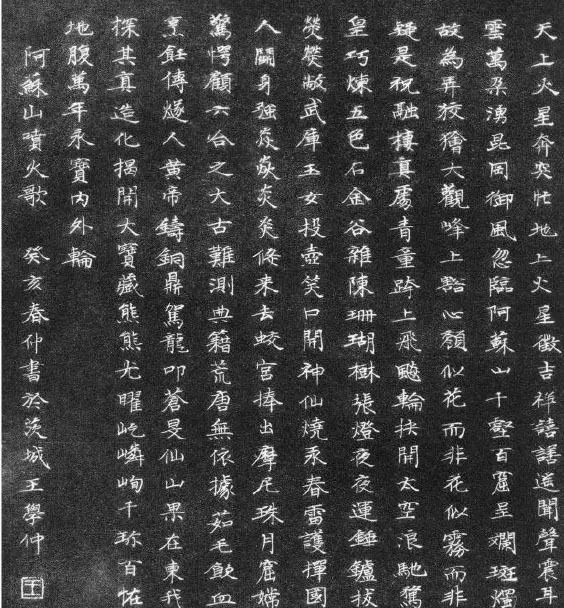 天上火星奔突壯地上火星徵吉祥譆譆遙聞聲震耳
雲萬朵湧昆岡御風忽臨阿蘇山千壑百窟呈斕斑熠
故為弄狡獪大觀峰上豁心顏似花而非花似霧而非
疑是祝融棲真處青童跨上飛颷輪抉開太空浪馳騖
皇巧煉五色石金谷雜陳珊瑚樹張燈夜夜運錘鑪拔
熒熒敞武庫玉女投壺笑口開神仙燒汞春雷護揮國
人鬭身強焱焱炎炎倏来去蛟宮捧出摩尼珠月窟嫦
驚愕顧六合之大古難測典籍荒唐無依據茹毛飲血
烹飪傳燧人黃帝鑄銅鼎駕龍叩蒼旻仙山果在東我
探其真造化揭開大寶藏熊熊光曜屹嶙峋千珍百怪
地腹萬年永寶內外輪
阿蘇山噴火歌 癸亥春仲書於茨城王學仲 王